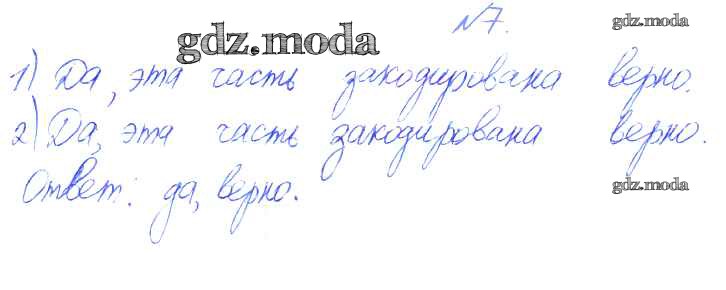 №7.
gdz.moda
gdz.moda
1) Да, эта часть закодирована верно.
2) Да, эта часть закодирована верно.
Ответ: да, верно.
gdz.moda